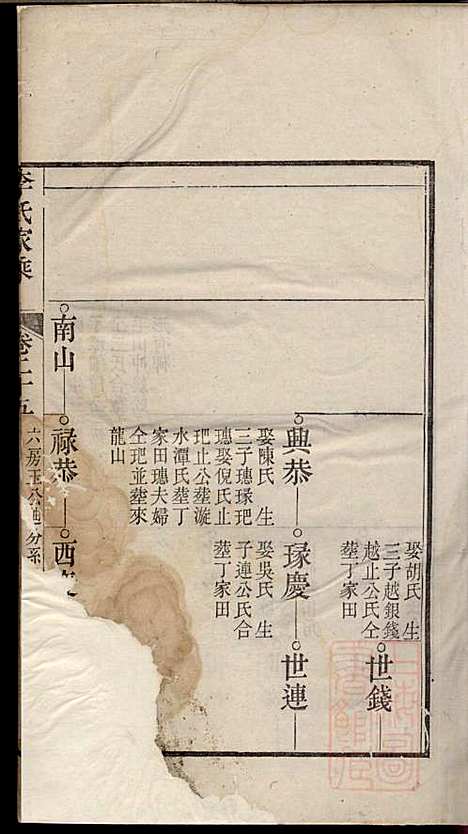 娶胡氏 生
三子越銀錢
越止公氏仝
塟丁家田
世錢
興恭
娶陳氏 生
三子璁瑑玘
璁娶倪氏止
玘止公塟漩
水潭氏塟丁
家田璁夫婦
仝玘並塟來
龍山
瑑慶
娶吳氏 生
子連公氏合
塟丁家田
世連
南山
祿恭
西
李氏家乘
卷二十五
六房玉公遗分系